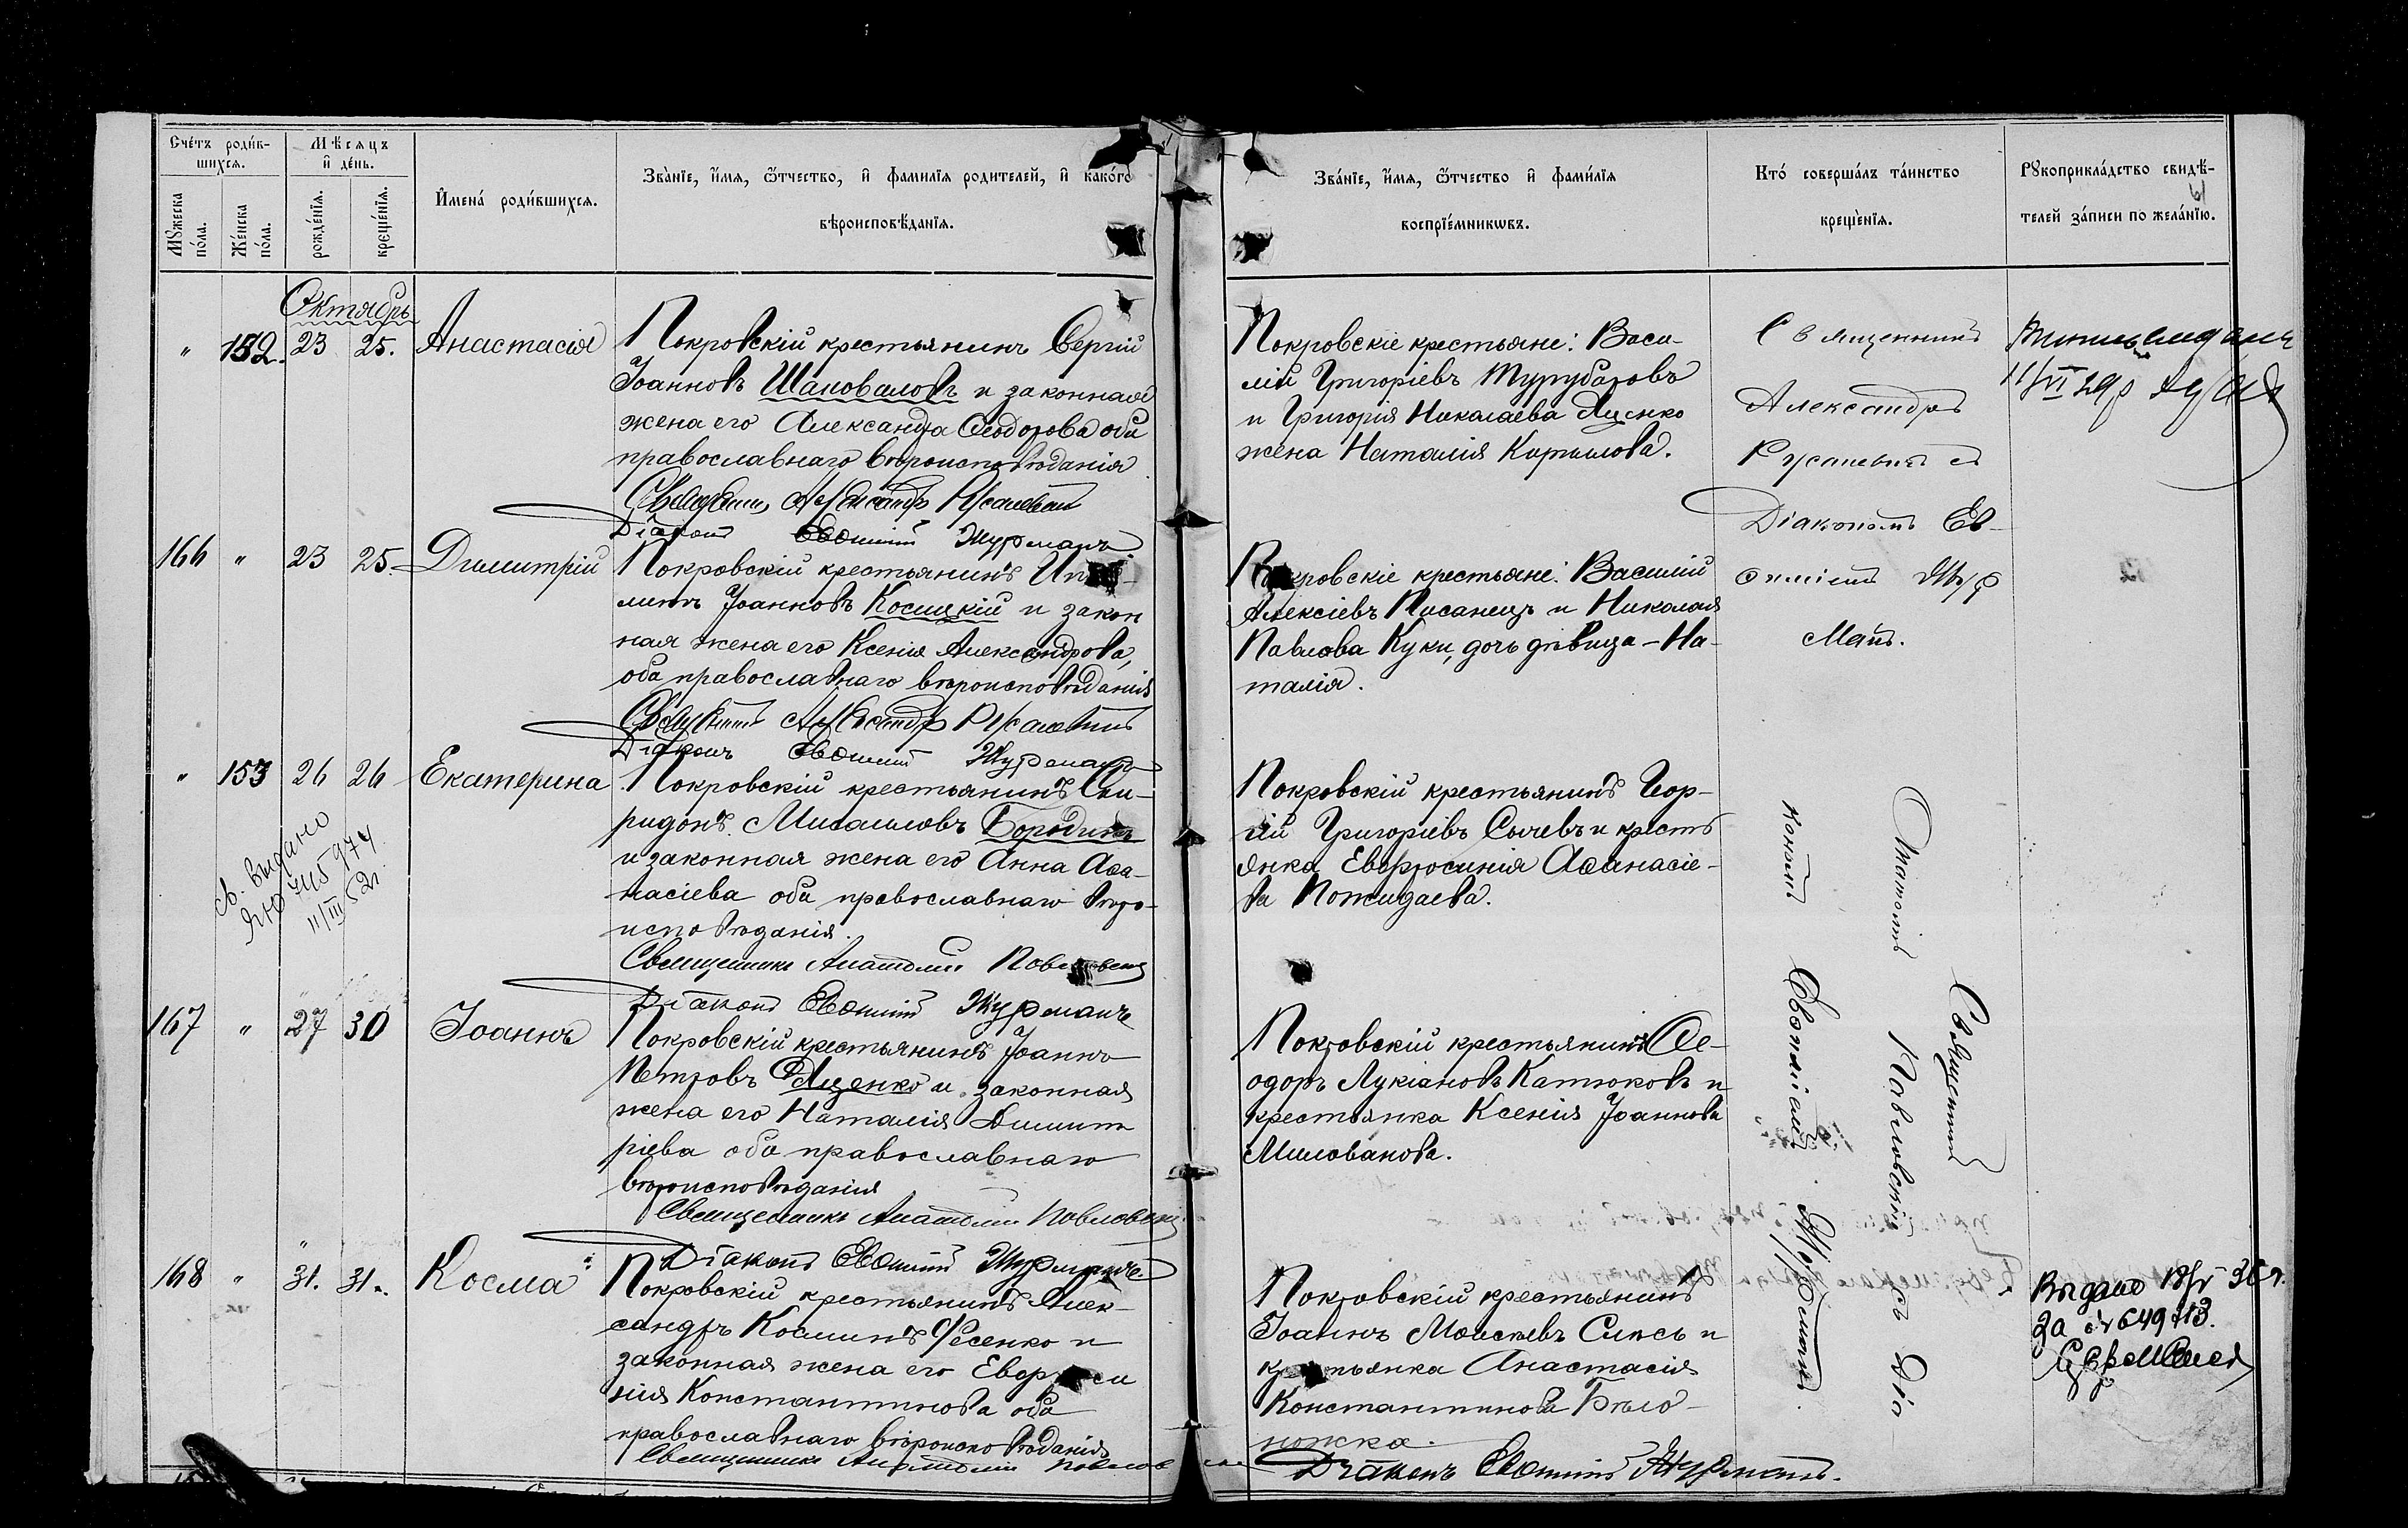 Сче́тъ роди́в-
шихся.
Мѣсяцъ
и҆ де́нь.
Мꙋ́жеска
по́ла.
Же́нска
по́ла.
рожде́нїя.
креще́нїя.
И҆мена́ роди́вшихся.
Зва́нїе, и҆́мя, ѻ҆́тчество, и҆ фами́лїя роди́телей, и҆ како́гѡ
вѣроисповѣ́данїя.
Зва́нїе, и҆́мя, ѻ҆́тчество и҆ фами́лїя
воспрїе́мникѡвъ.
Кто́ соверша́лъ та́инство
креще́нїя.
Рꙋкоприкла́дство свидѣ́-
телей за́писи по жела́нїю.
Октябрь
" 152. 23 25. Анастасія
Покровскій крестьянинъ Сергій
Іоанновъ Шаповаловъ и законная
жена его Александра Ѳеодорова оба
православнаго вѣроисповѣданія
Священникъ Александръ Русаневичъ
Діаконъ Евѳимій Журманъ
Покровскіе крестьяне: Васи-
лій Григоріевъ Турубаровъ
и Григорія Николаева Яценко
жена Наталія Кирилова.
Священникъ
Александръ
Русаневичъ съ
Діакономъ Ев-
ѳиміемъ Жур
маномъ.
166 " 23 25. Димитрій
Покровскій крестьянинъ
Іоанновъ Косицкій и закон
ная жена его Ксенія Александрова,
оба православнаго вѣроисповѣданія
Священникъ Александръ Русаневичъ
Діаконъ Евѳимій Журманъ
Покровскіе крестьяне: Василій
Алексіевъ Писанецъ и Николая
Павлова Куки, дочь дѣвица - На-
талія.
" 153 26 26 Екатерина
св. выдано
ЯЮ 745974
11/III 52г
Покровскій крестьянинъ Спи-
ридонъ Михаиловъ Бородинъ
и законная жена его Анна Аѳа-
насіева оба православнаго вѣро-
исповѣданія.
Священникъ Анатолій Павловскій
Діаконъ Евѳимій Журманъ
Покровскій крестьянинъ Геор-
гій Григоріевъ Сычевъ и кресть
янка Евфросинія Аѳанасіе-
ва Пожидаева.
Священникъ
Анатолій
Павловскій съ Діа
кономъ Евѳиміемъ Журманомъ.
167 " 27 30 Іоаннъ
Покровскій крестьянинъ Іоаннъ
Петровъ Яценко и законная
жена его Наталія Димит
ріева оба православнаго
вѣроисповѣданія
Священникъ Анатолій Павловскій
Діаконъ Евѳимій Журманъ.
Покровскій крестьянинъ Ѳе-
одоръ Лукіановъ Катюковъ и
крестьянка Ксенія Іоаннова
Милованова.
168 " 31. 31. Косма
Покровскій крестьянинъ Алек-
сандръ Косминъ Фесенко и
законная жена его Евфроси
нія Константинова оба
православнаго вѣроисповѣданія
Священникъ Анатолій Павловскій
Покровскій крестьянинъ
Іоаннъ Моисѣевъ Сиксь и
крестьянка Анастасія
Константинова Бѣло-
ножка.
Діаконъ Евѳимій Журманъ.
Выдано 18/V 36 г.
За № 649713.